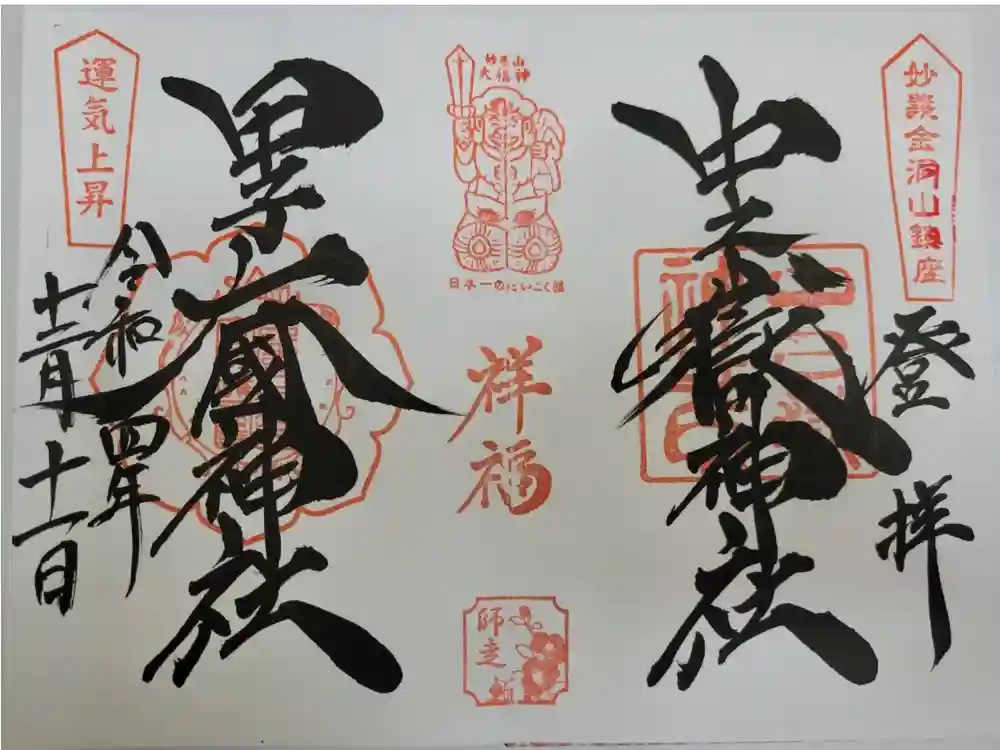 妙義金洞山鎮座
登拝
中之嶽神社
妙義山
大福神
日本一のだいこく様
祥福
師走
甲子大國神社
運気上昇
令和四年
十二月十一日